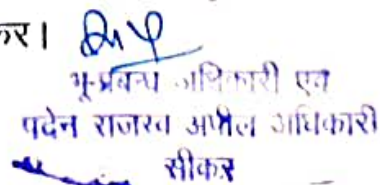 कर।
भू-प्रबन्ध अधिकारी एवं
पदेन राजस्व अपील अधिकारी
सीकर